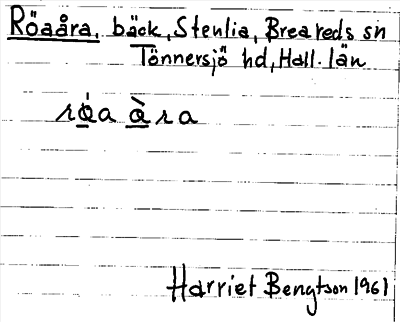 Röaåra, bäck, Stenlia, Breareds sn
Tönnersjö hd, Hall. län
röa àra
Harriet Bengtson 1961